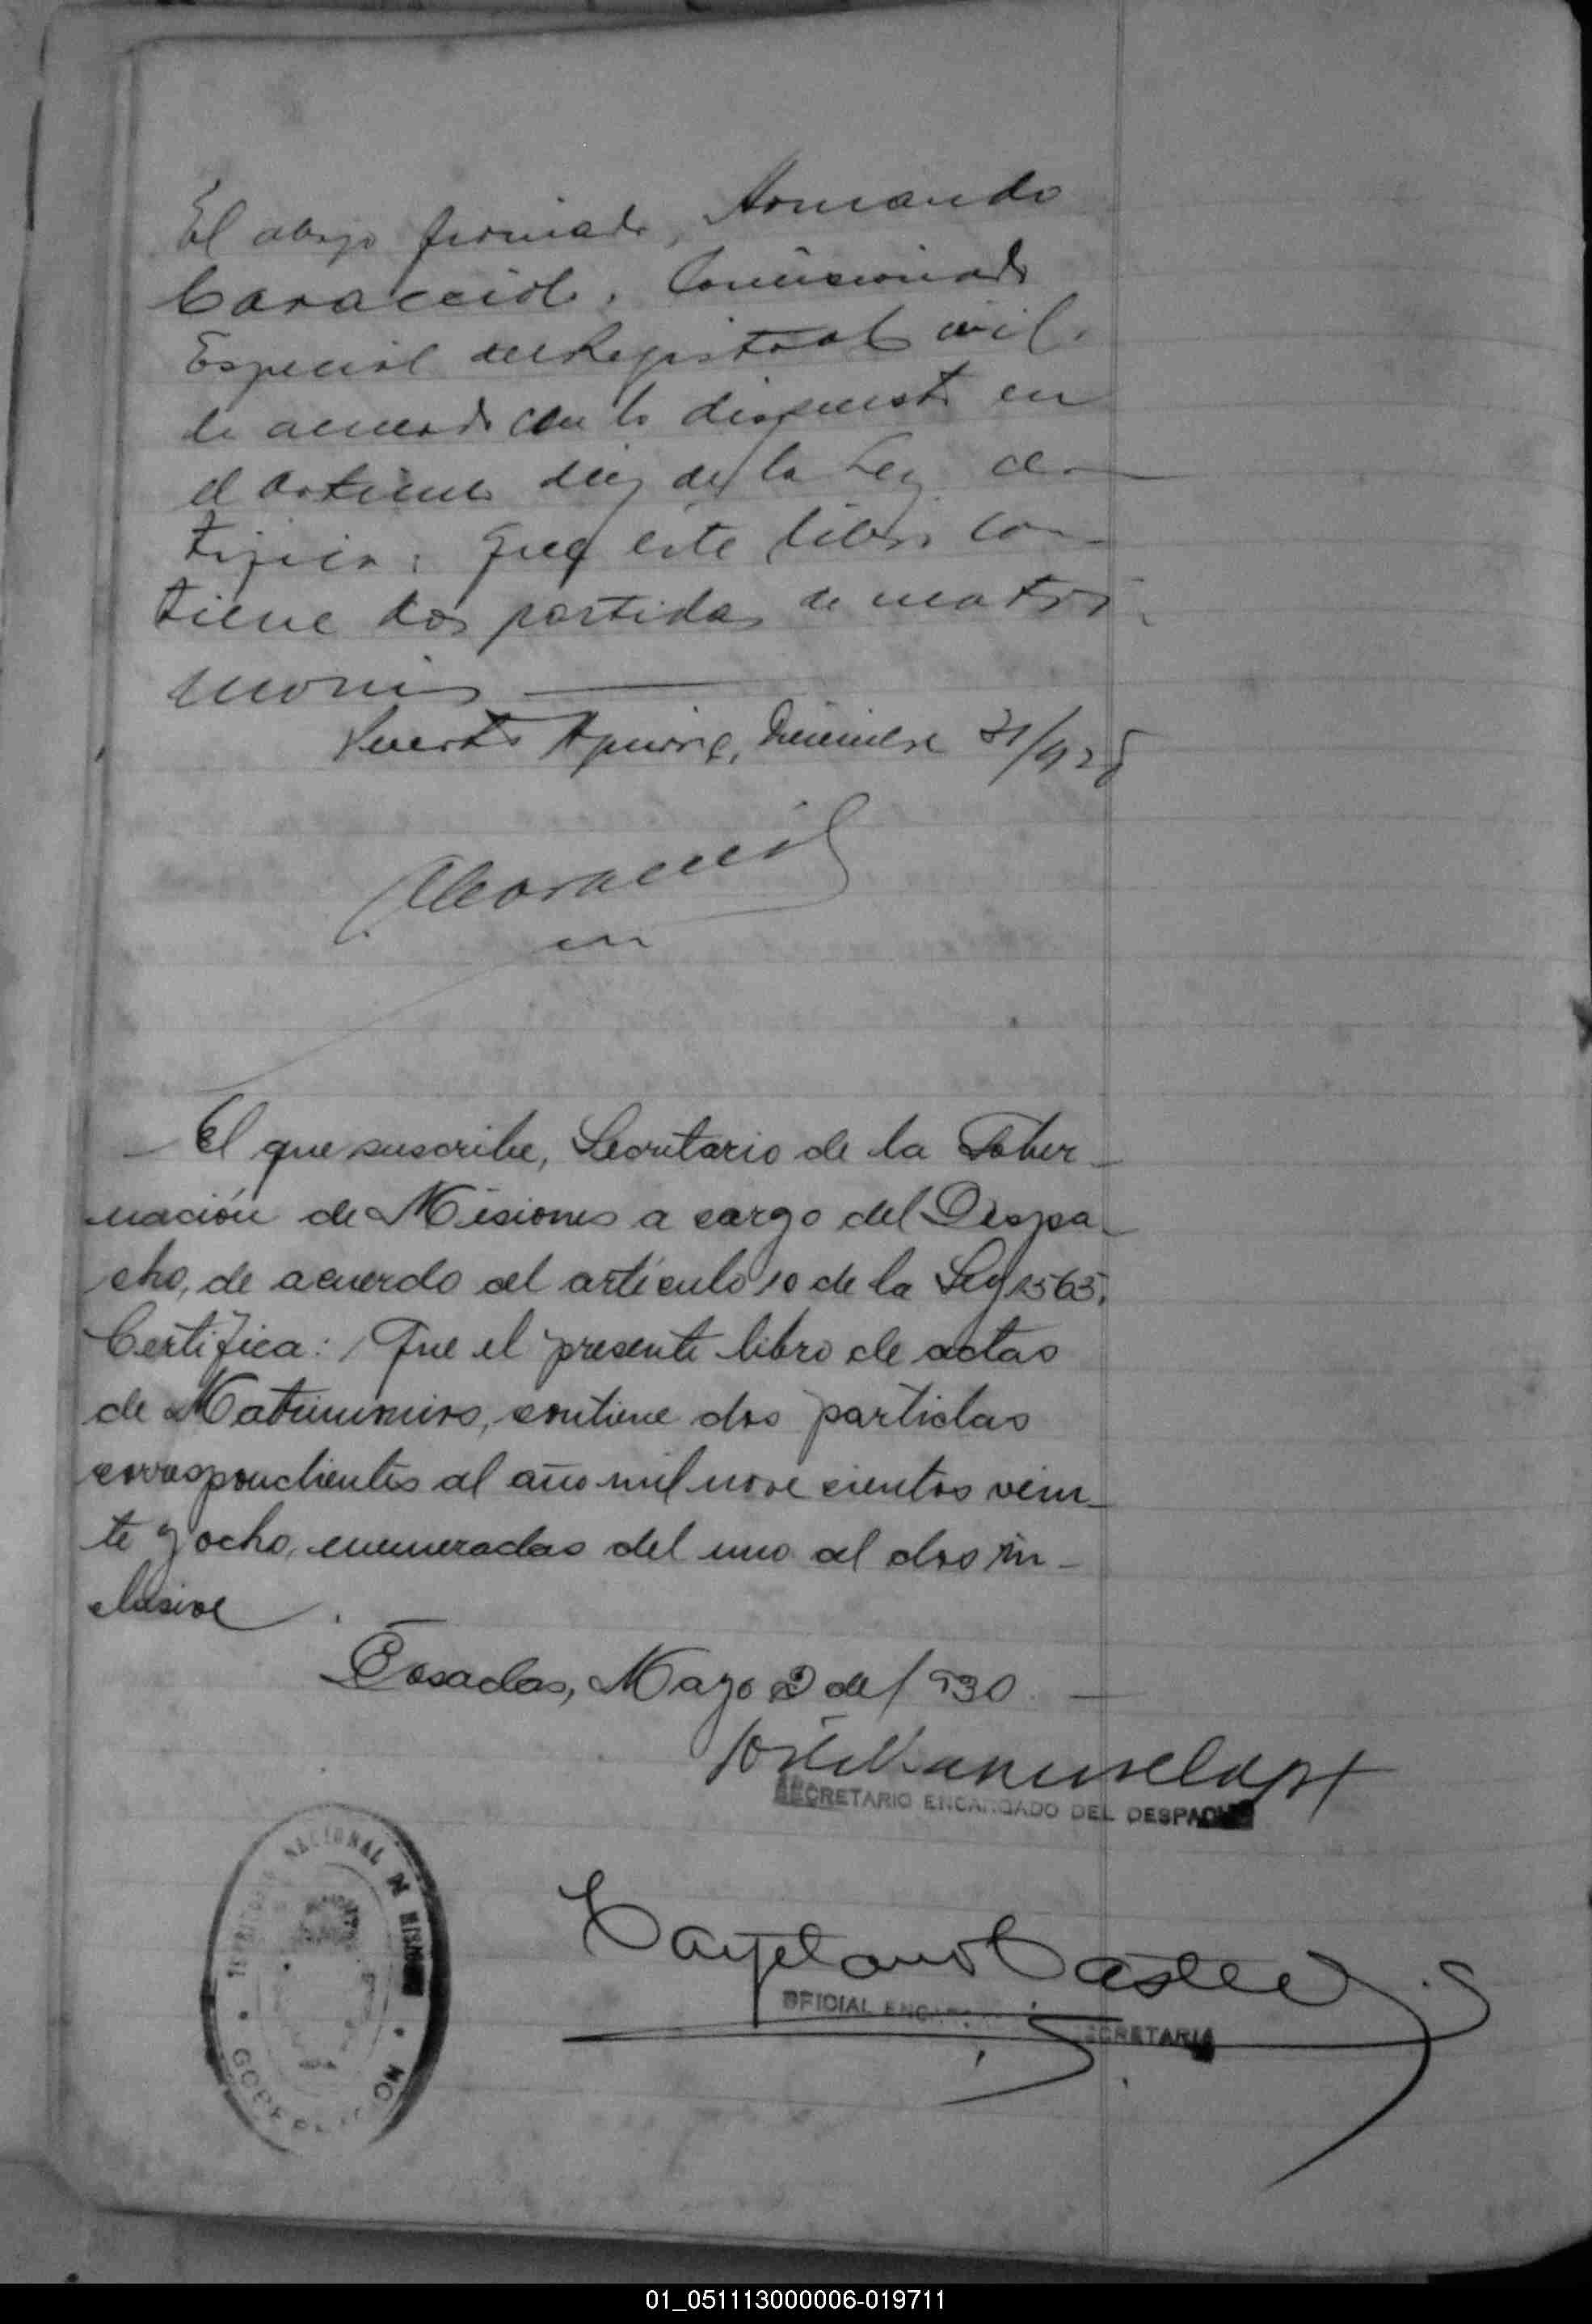 El abajo firmado, Armando
Caracciolo, Comisionado
Especial del Registro Civil,
de acuerdo con lo dispuesto en
el artículo diez de la Ley cer-
tifica: Que este libro con-
tiene dos partidas de matri-
monios
Puerto Aguirre, Diciembre 31/928
El que suscribe, Secretario de la Gober-
nación de Misiones a cargo del Despa-
cho, de acuerdo al artículo 10 de la Ley 1565,
Certifica: Que el presente libro de actas
de Matrimonios, contiene dos partidas
correspondientes al año mil nove cientos vein-
te y ocho, enumeradas del uno al dos in-
clusive.
Posadas, Mayo 2 de 1930
SECRETARIO ENCARGADO DEL DESPACHO
TERRITORIO NACIONAL DE MISIONES
GOBERNACION
Cayetano Castel
OFICIAL ENCAR SECRETARIA
01_051113000006-019711